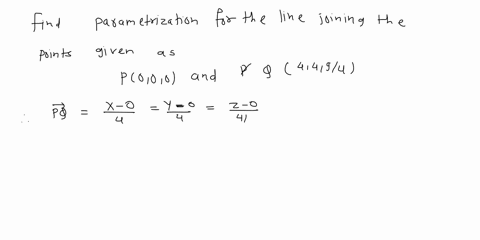 find parametrization for the line joining the
points given as
P(0,0,0) and Q (4,4,9/4)
∴ PQ = x-0/4 = y-0/4 = z-0/4,